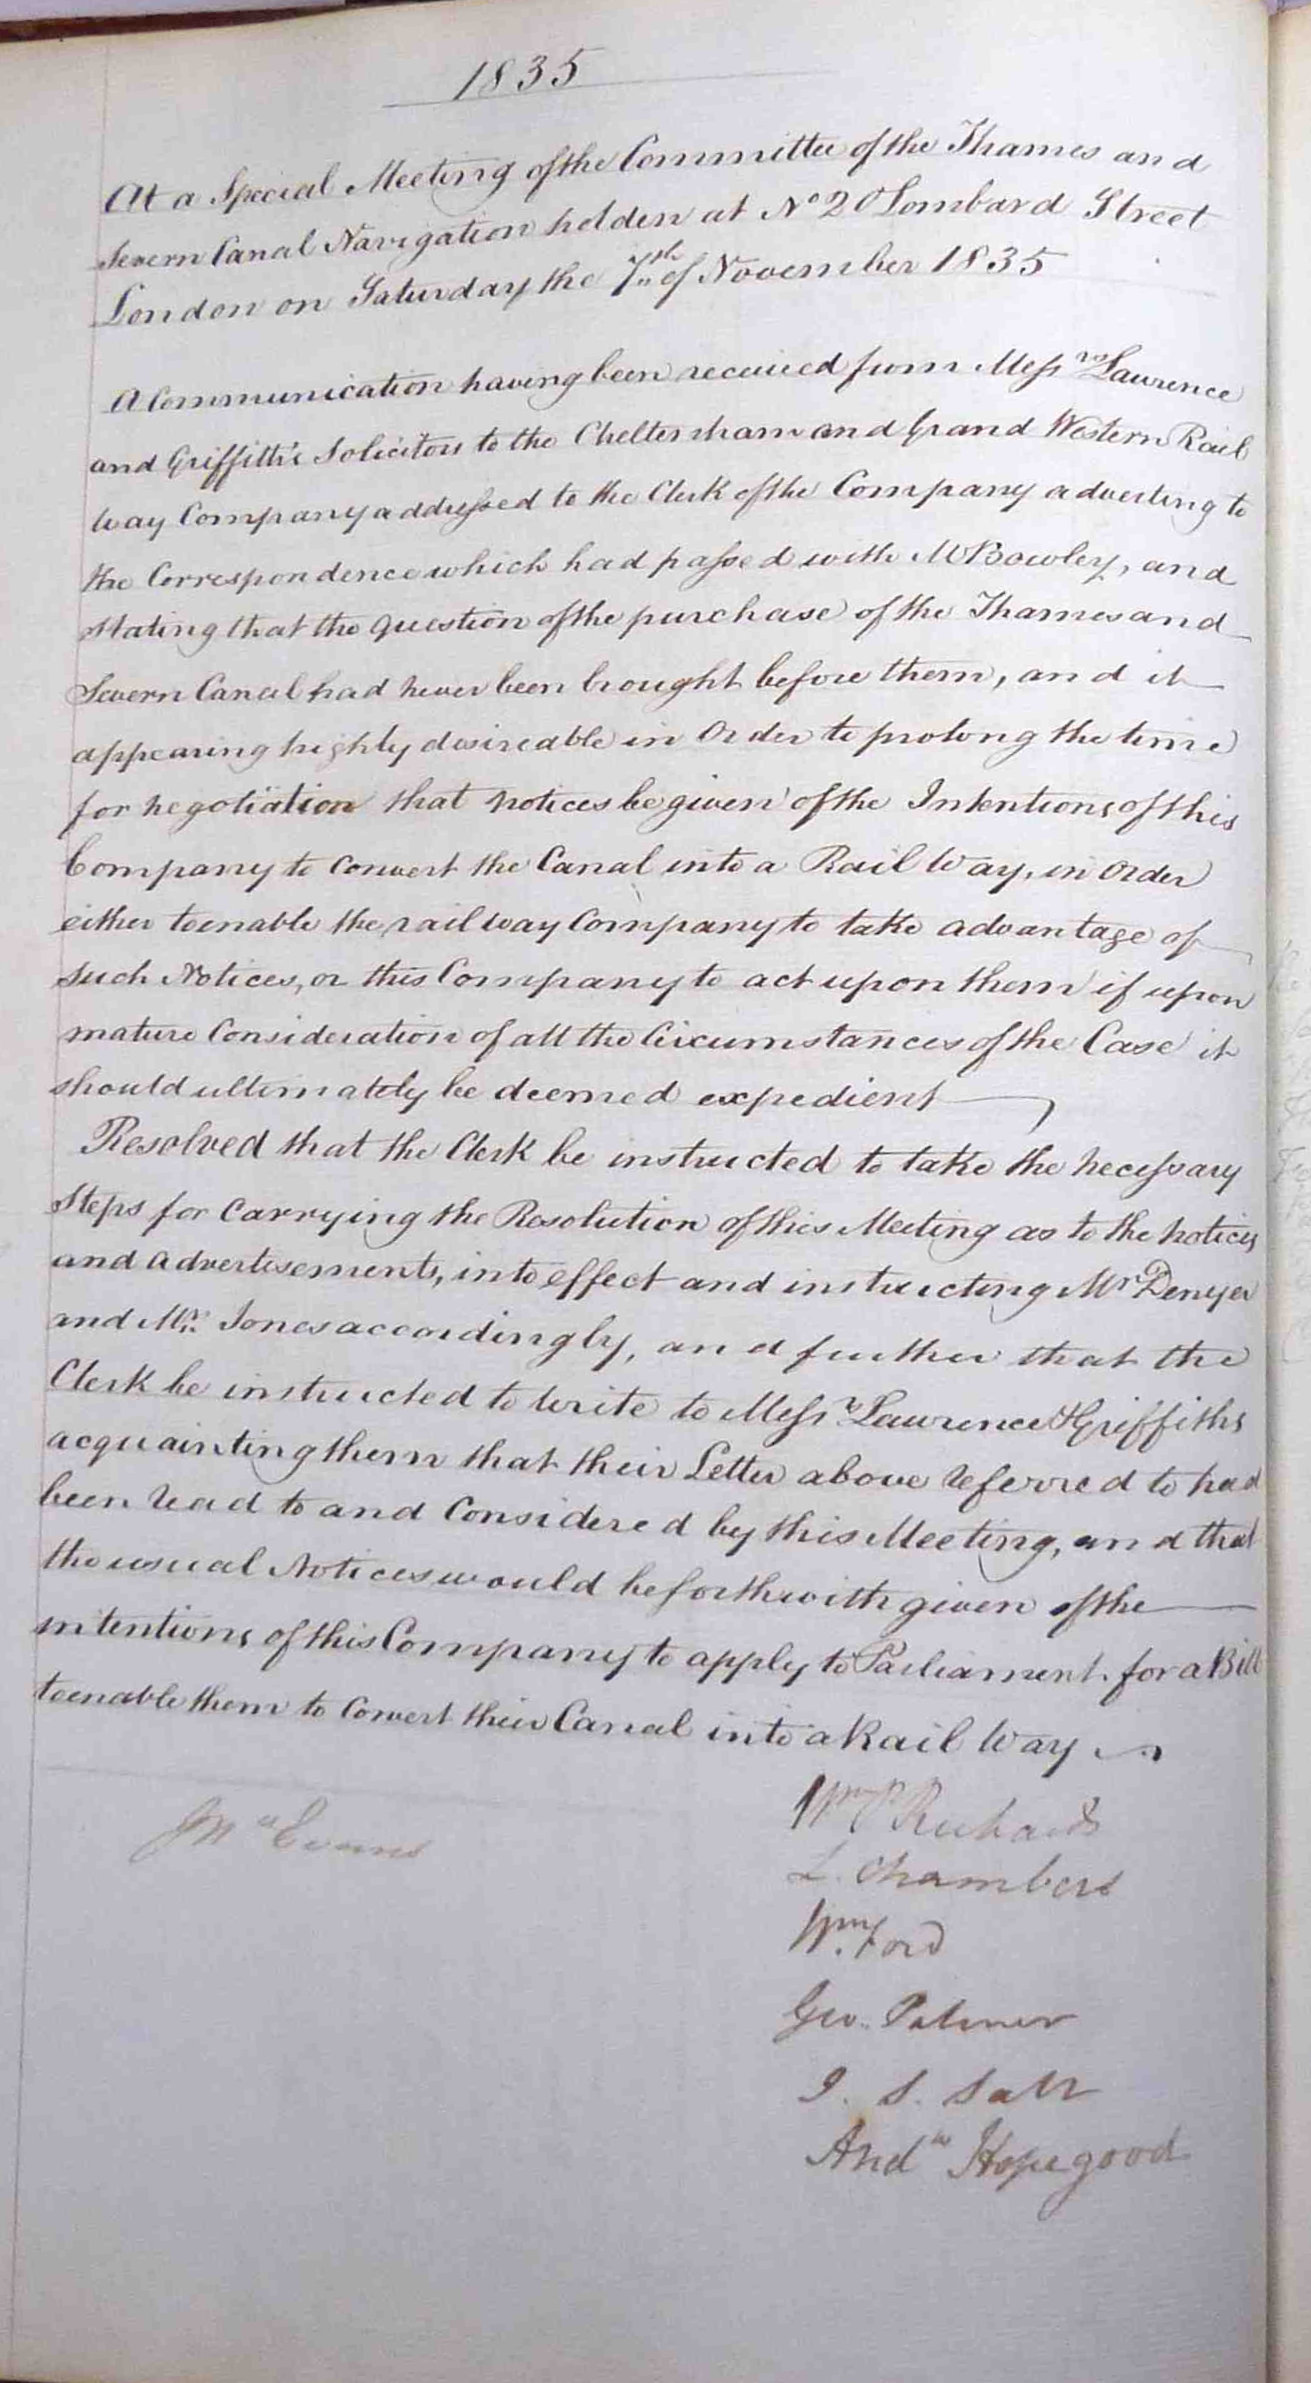 1835
At a Special Meeting of the Committee of the Thames and
Severn Canal Navigation holden at No 20 Lombard Street
London on Saturday the 7th of November 1835
A Communication having been received from Messrs Lawrence
and Griffiths Solicitors to the Cheltenham and Grand Western Rail
way Company addressed to the Clerk of the Company adverting to
the Correspondence which had passed with Mr Bowley, and
stating that the question of the purchase of the Thames and
Severn Canal had never been brought before them, and it
appearing highly desireable in Order to prolong the time
for negotiation that notices be given of the Intentions of this
Company to convert the Canal into a Rail Way, in Order
either to enable the railway Company to take advantage of
such Notices, or this Company to act upon them if upon
mature Consideration of all the Circumstances of the Case it
should ultimately be deemed expedient
Resolved that the Clerk be instructed to take the necessary
Steps for Carrying the Resolution of this Meeting as to the notices
and Advertisements, into effect and instructing Mr Denyer
and Mr. Jones accordingly, and further that the
Clerk be instructed to write to Messrs Lawrence & Griffiths
acquainting them that their Letter above referred to had
been read to and Considered by this Meeting, and that
the usual Notices would be forthwith given of the
intentions of this Company to apply to Parliament for a Bill
to enable them to Convert their Canal into a Rail Way
Wm P Richards
Jno Evans
L. Chambers
Wm. Ford
Geo. Palmer
J. S. Salt
Andw Hopegood